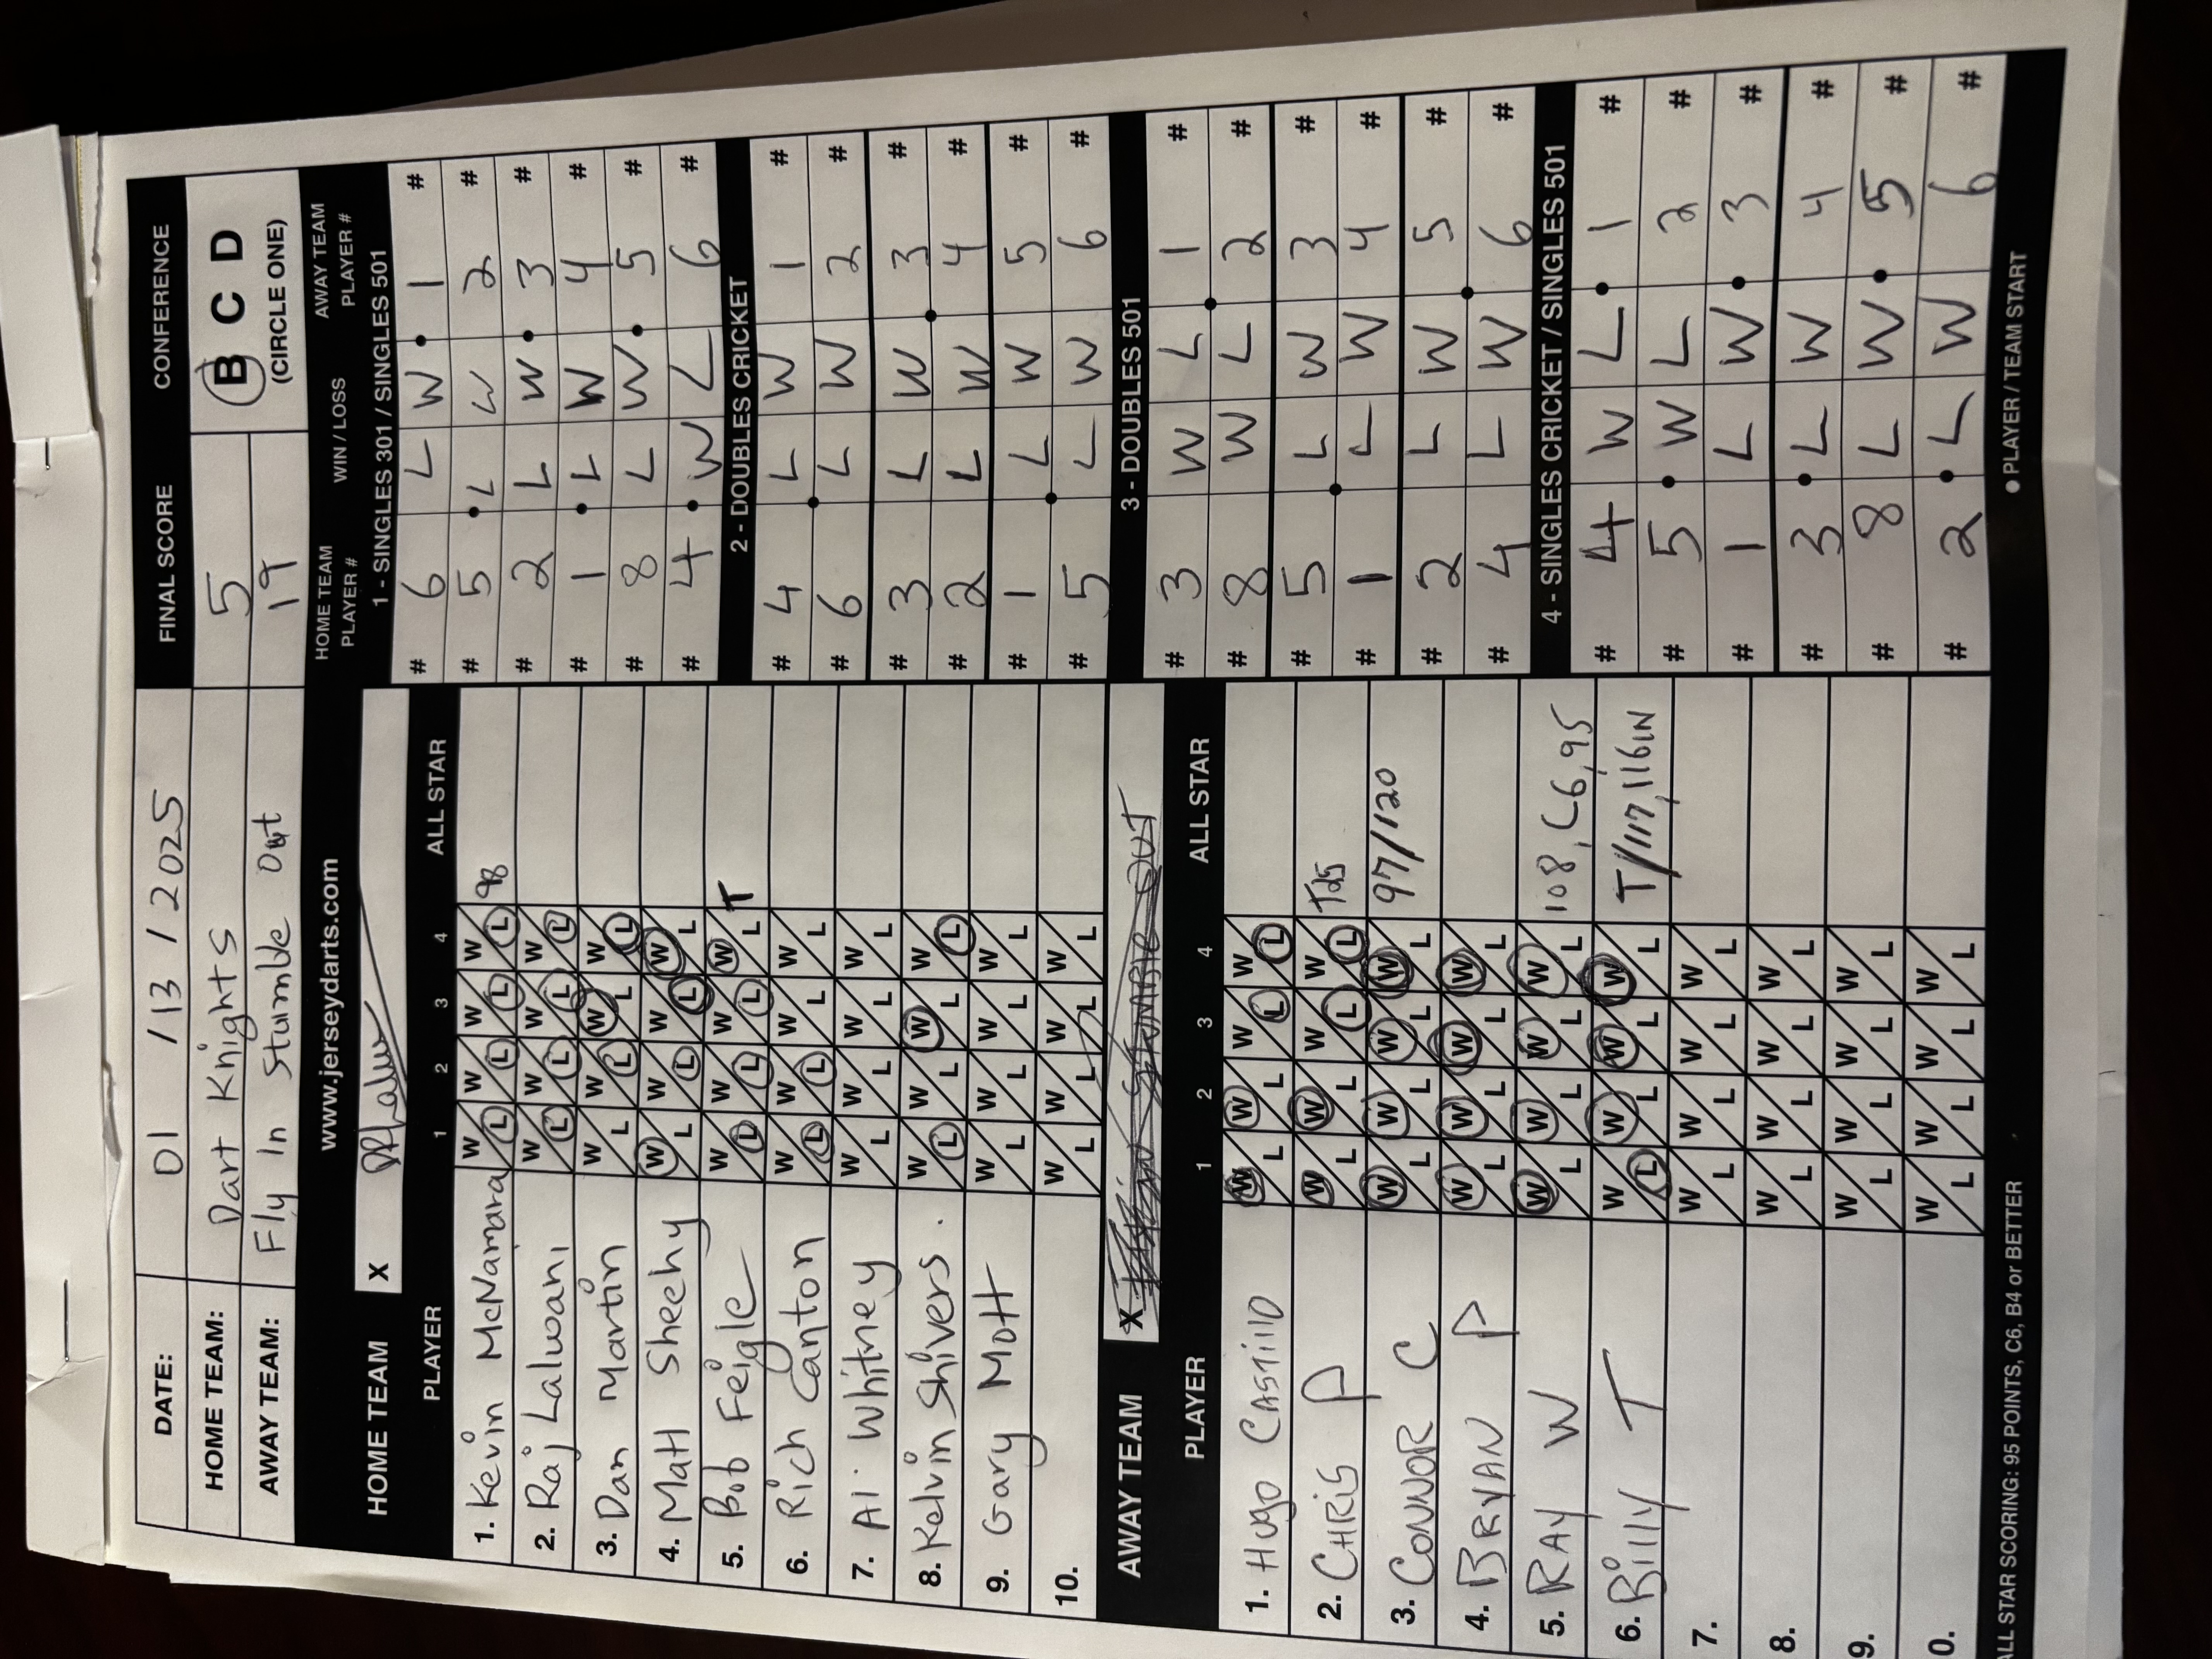 DATE: 01 / 13 / 2025 FINAL SCORE CONFERENCE
HOME TEAM: Dart Knights 5 B C D
AWAY TEAM: Fly In Stumble Out 19 (CIRCLE ONE)
www.jerseydarts.com
HOME TEAM X
PLAYER 1 2 3 4 ALL STAR
1. Kevin McNamara W L W L W L W L 98
2. Raj Lalwani W L W L W L W L
3. Dan Martin W L W L W L W L
4. Matt Sheehy W L W L W L W L
5. Bob Feigle W L W L W L W L T
6. Rich Canton W L W L W L W L
7. Al Whitney W L W L W L W L
8. Kelvin Shivers. W L W L W L W L
9. Gary Mott W L W L W L W L
10. W L W L W L W L
AWAY TEAM X
PLAYER 1 2 3 4 ALL STAR
1. HUGO CASTILLO W L W L W L W L
2. CHRIS P W L W L W L W L T25
3. CONNOR C W L W L W L W L 97/120
4. BRYAN P W L W L W L W L
5. RAY W W L W L W L W L 108, C6, 95
6. Billy T W L W L W L W L T/117, 116IN
7. W L W L W L W L
8. W L W L W L W L
9. W L W L W L W L
0. W L W L W L W L
ALL STAR SCORING: 95 POINTS, C6, B4 or BETTER
HOME TEAM PLAYER # WIN / LOSS AWAY TEAM PLAYER #
1 - SINGLES 301 / SINGLES 501
# 6 L W 1 #
# 5 L W 2 #
# 2 L W 3 #
# 1 L W 4 #
# 8 L W 5 #
# 4 W L 6 #
2 - DOUBLES CRICKET
# 4 L W 1 #
# 6 L W 2 #
# 3 L W 3 #
# 2 L W 4 #
# 1 L W 5 #
# 5 L W 6 #
3 - DOUBLES 501
# 3 W L 1 #
# 8 W L 2 #
# 5 L W 3 #
# 1 L W 4 #
# 2 L W 5 #
# 4 L W 6 #
4 - SINGLES CRICKET / SINGLES 501
# 4 W L 1 #
# 5 W L 2 #
# 1 L W 3 #
# 3 L W 4 #
# 8 L W 5 #
# 2 L W 6 #
● PLAYER / TEAM START